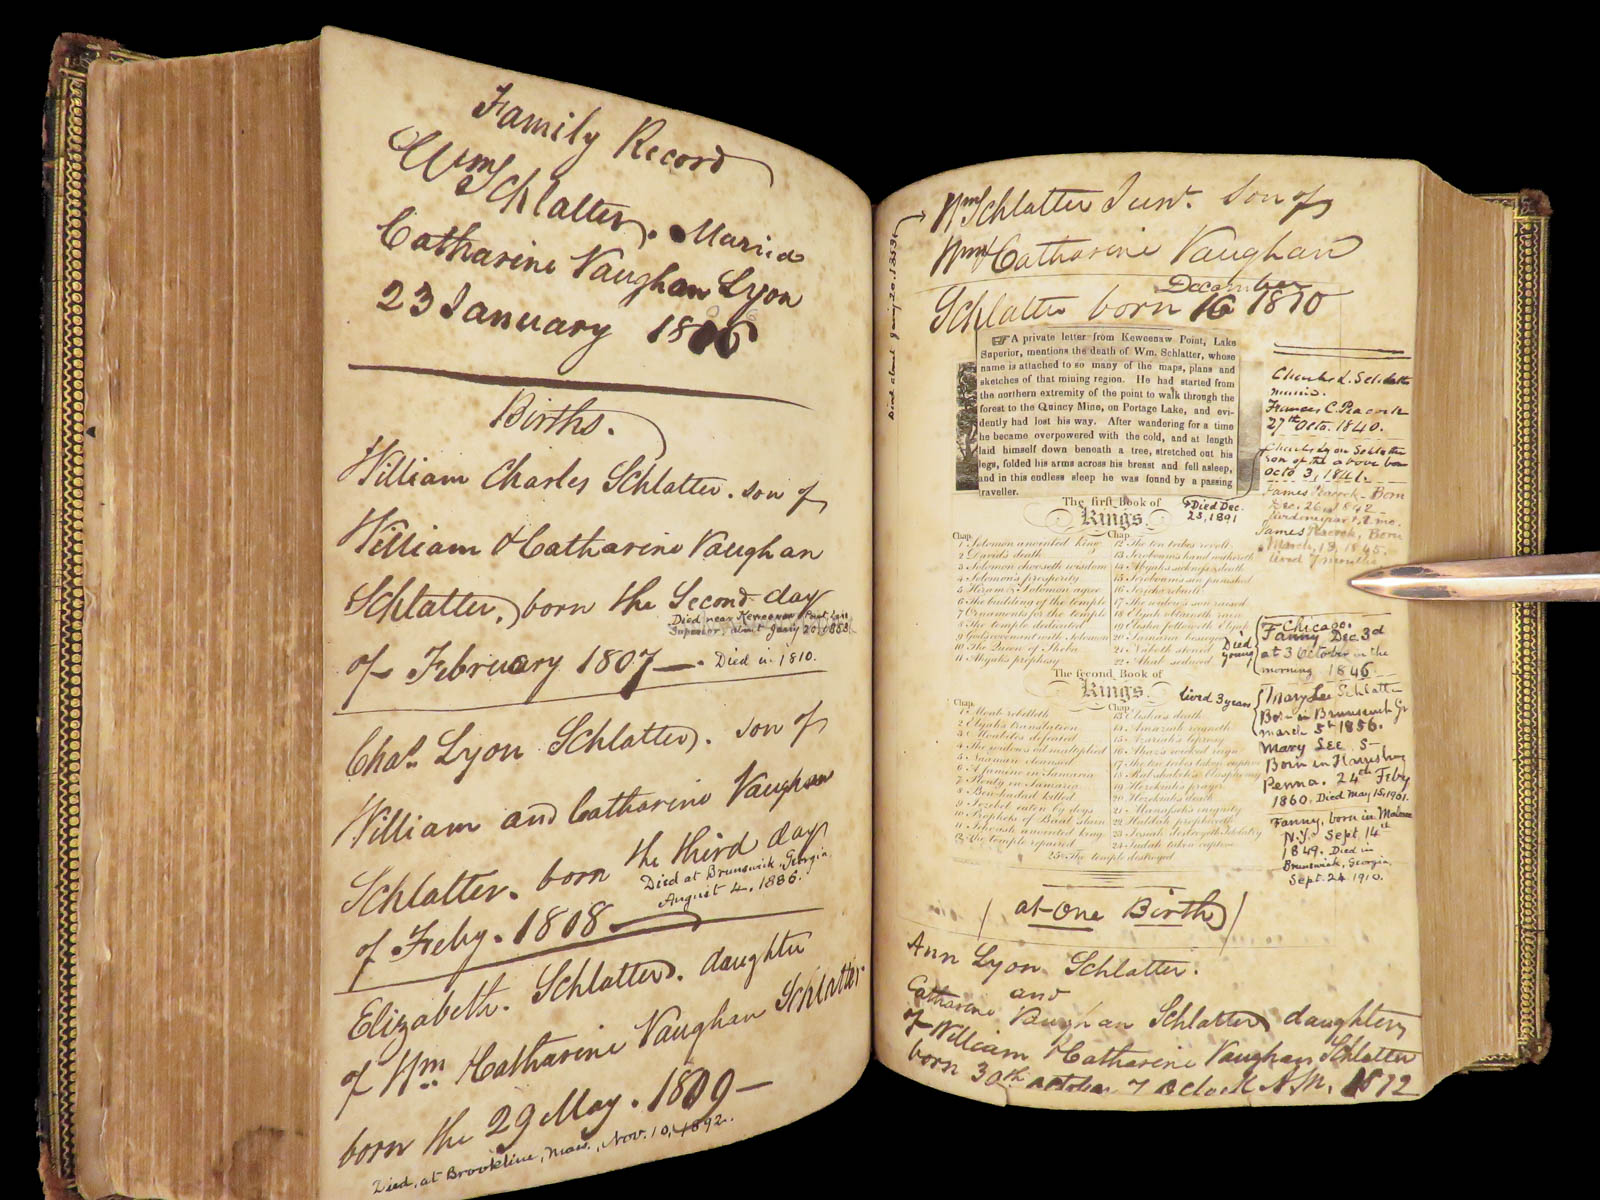 Family Record
Wm Schlatter. Maried
Catharine Vaughan Lyon
23 January 1806
Births.
William Charles Schlatter. son of
William & Catharine Vaughan
Schlatter. born the Second day
Died near Keweenaw Point, Lake
Superior, about Jan'y 20, 1853.
of February 1807 —. Died in 1810.
Chas. Lyon Schlatter. son of
William and Catharine Vaughan
Schlatter. born the third day
Died at Brunswick, Georgia,
August 4, 1886.
of Feby. 1808 —
Elizabeth. Schlatter. daughter
of Wm & Catharine Vaughan Schlatter
born the 29 May. 1809 —
Died, at Brookline, Mass., Nov. 10, 1892.
Died about Jan'y 20, 1853.
Wm Schlatter Junr. Son of
Wm & Catharine Vaughan
December
Schlatter born 16 1810
A private letter from Keweenaw Point, Lake
Superior, mentions the death of Wm. Schlatter, whose
name is attached to so many of the maps, plans and
sketches of that mining region. He had started from
the northern extremity of the point to walk through the
forest to the Quincy Mine, on Portage Lake, and evi-
dently had lost his way. After wandering for a time
he became overpowered with the cold, and at length
laid himself down beneath a tree, stretched out his
legs, folded his arms across his breast and fell asleep,
and in this endless sleep he was found by a passing
traveller.
Charles L. Schlatter
Francis C. Peacock
27th Octo. 1840.
Charles Lyon Schlatter
son of the above born
Octo 3, 1841.
Died Dec.
23, 1891
James Peacock - Born
Dec. 26, 1842
James Peacock, Born
March, 13, 1845.
lived 7 months
The first Book of
Kings.
Chap. Chap.
1 Solomon anointed king
2 David's death
3 Solomon chooseth wisdom
4 Solomon's prosperity
5 Hiram & Solomon agree
6 The building of the temple
7 Ornaments for the temple
8 The temple dedicated
9 God's covenant with Solomon
10 The Queen of Sheba
11 Ahijah's prophesy
12 The ten tribes revolt
13 Jeroboam's hand withereth
14 Abijah's sickness & death
15 Jeroboam's sin punished
16 Jericho rebuilt
17 The widow's son raised
18 Elijah obtaineth rain
19 Elisha followeth Elijah
20 Samaria besieged
21 Naboth stoned
22 Ahab seduced
Died
young
Chicago.
Fanny Dec 3d
at 3 October in the
morning 1846.
The second Book of
Kings.
Chap. Chap.
1 Moab rebelleth
2 Elijah's translation
3 Moabites defeated
4 The widow's oil multiplied
5 Naaman cleansed
6 A famine in Samaria
7 Plenty in Samaria
8 Ben-hadad killed
9 Jezebel eaten by dogs
10 Prophets of Baal slain
11 Jehoash anointed king
12 The temple repaired
13 Elisha's death
14 Amaziah reigneth
15 Azariah's leprosy
16 Ahaz's wicked reign
17 The ten tribes taken captive
18 Rabshakeh's blasphemy
19 Hezekiah's prayer
20 Hezekiah's death
21 Manasseh's iniquity
22 Huldah prophesieth
23 Josiah destroyeth Idolatry
24 Judah taken captive
25 The temple destroyed
lived 3 years
Mary Lee Schlatter
Born in Brunswick Ga
march 5th 1856.
Mary Lee S—
Born in Harrisburg
Penna. 24th Feby
1860. Died May 15, 1901.
Fanny, born in Malone
N.Y. Sept. 14th
1849. Died in
Brunswick, Georgia,
Sept. 24 1910.
at one Birth
Ann Lyon Schlatter.
and
Catharine Vaughan Schlatter daughters
of William & Catharine Vaughan Schlatter
born 30th october 7 oclock A.M. 1812